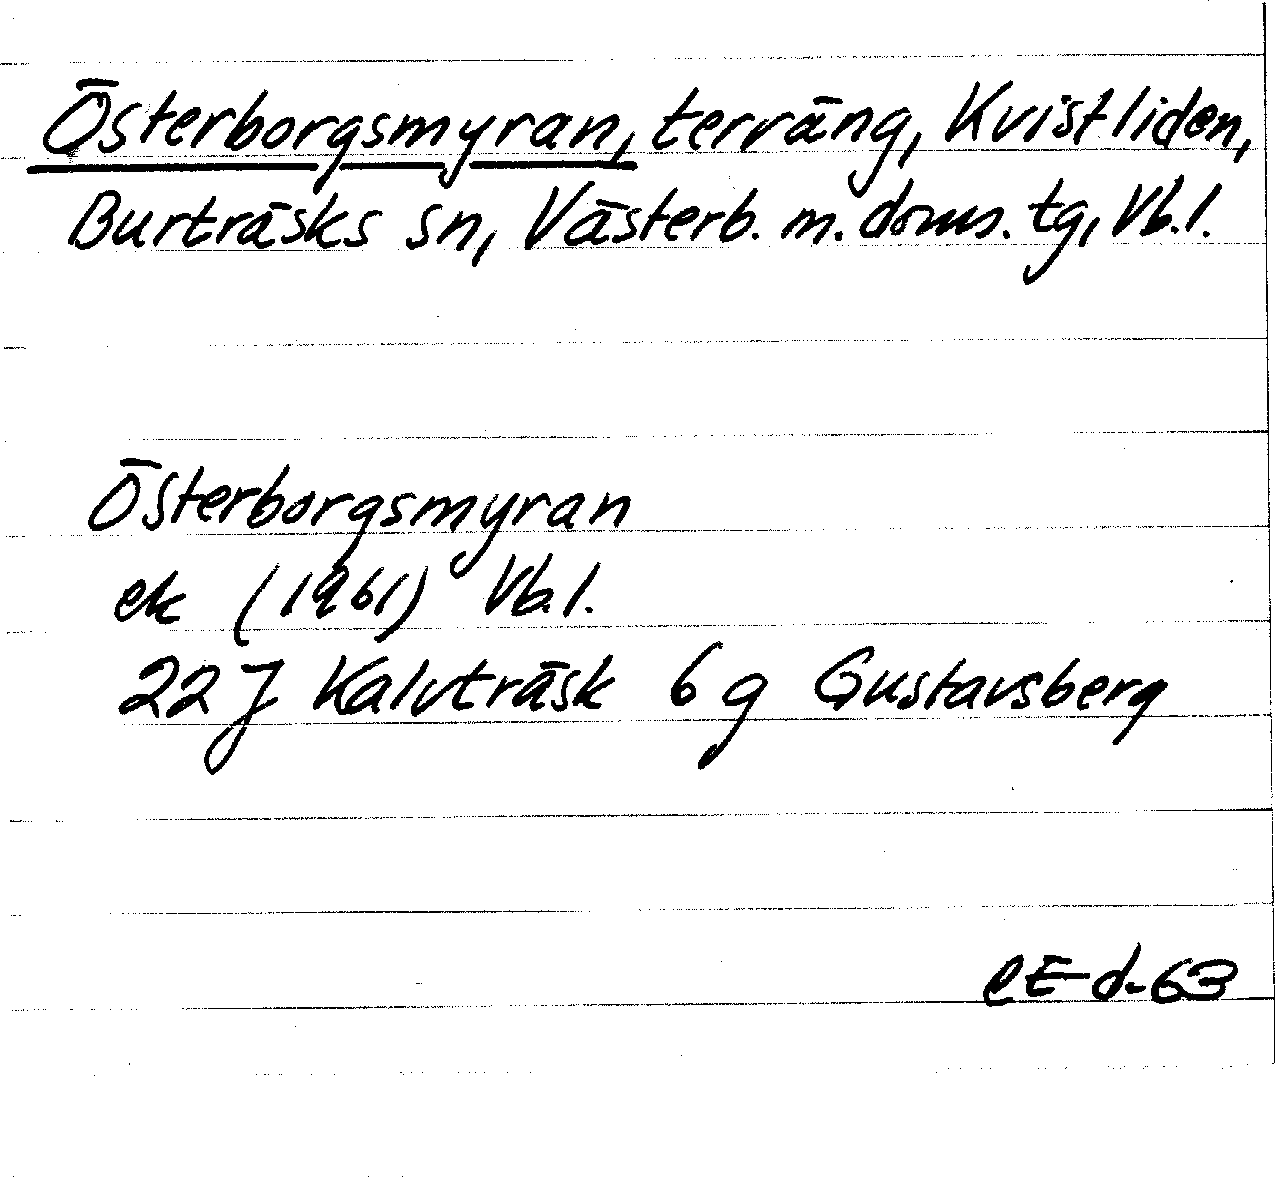 Österborgsmyran, terräng, Kvistliden,
Burträsks sn, Västerb. m. doms. tg, Vb. l.
Österborgsmyran
ek (1961) Vb. l.
22 J Kalvträsk 6 g Gustavsberg
CE-d-63